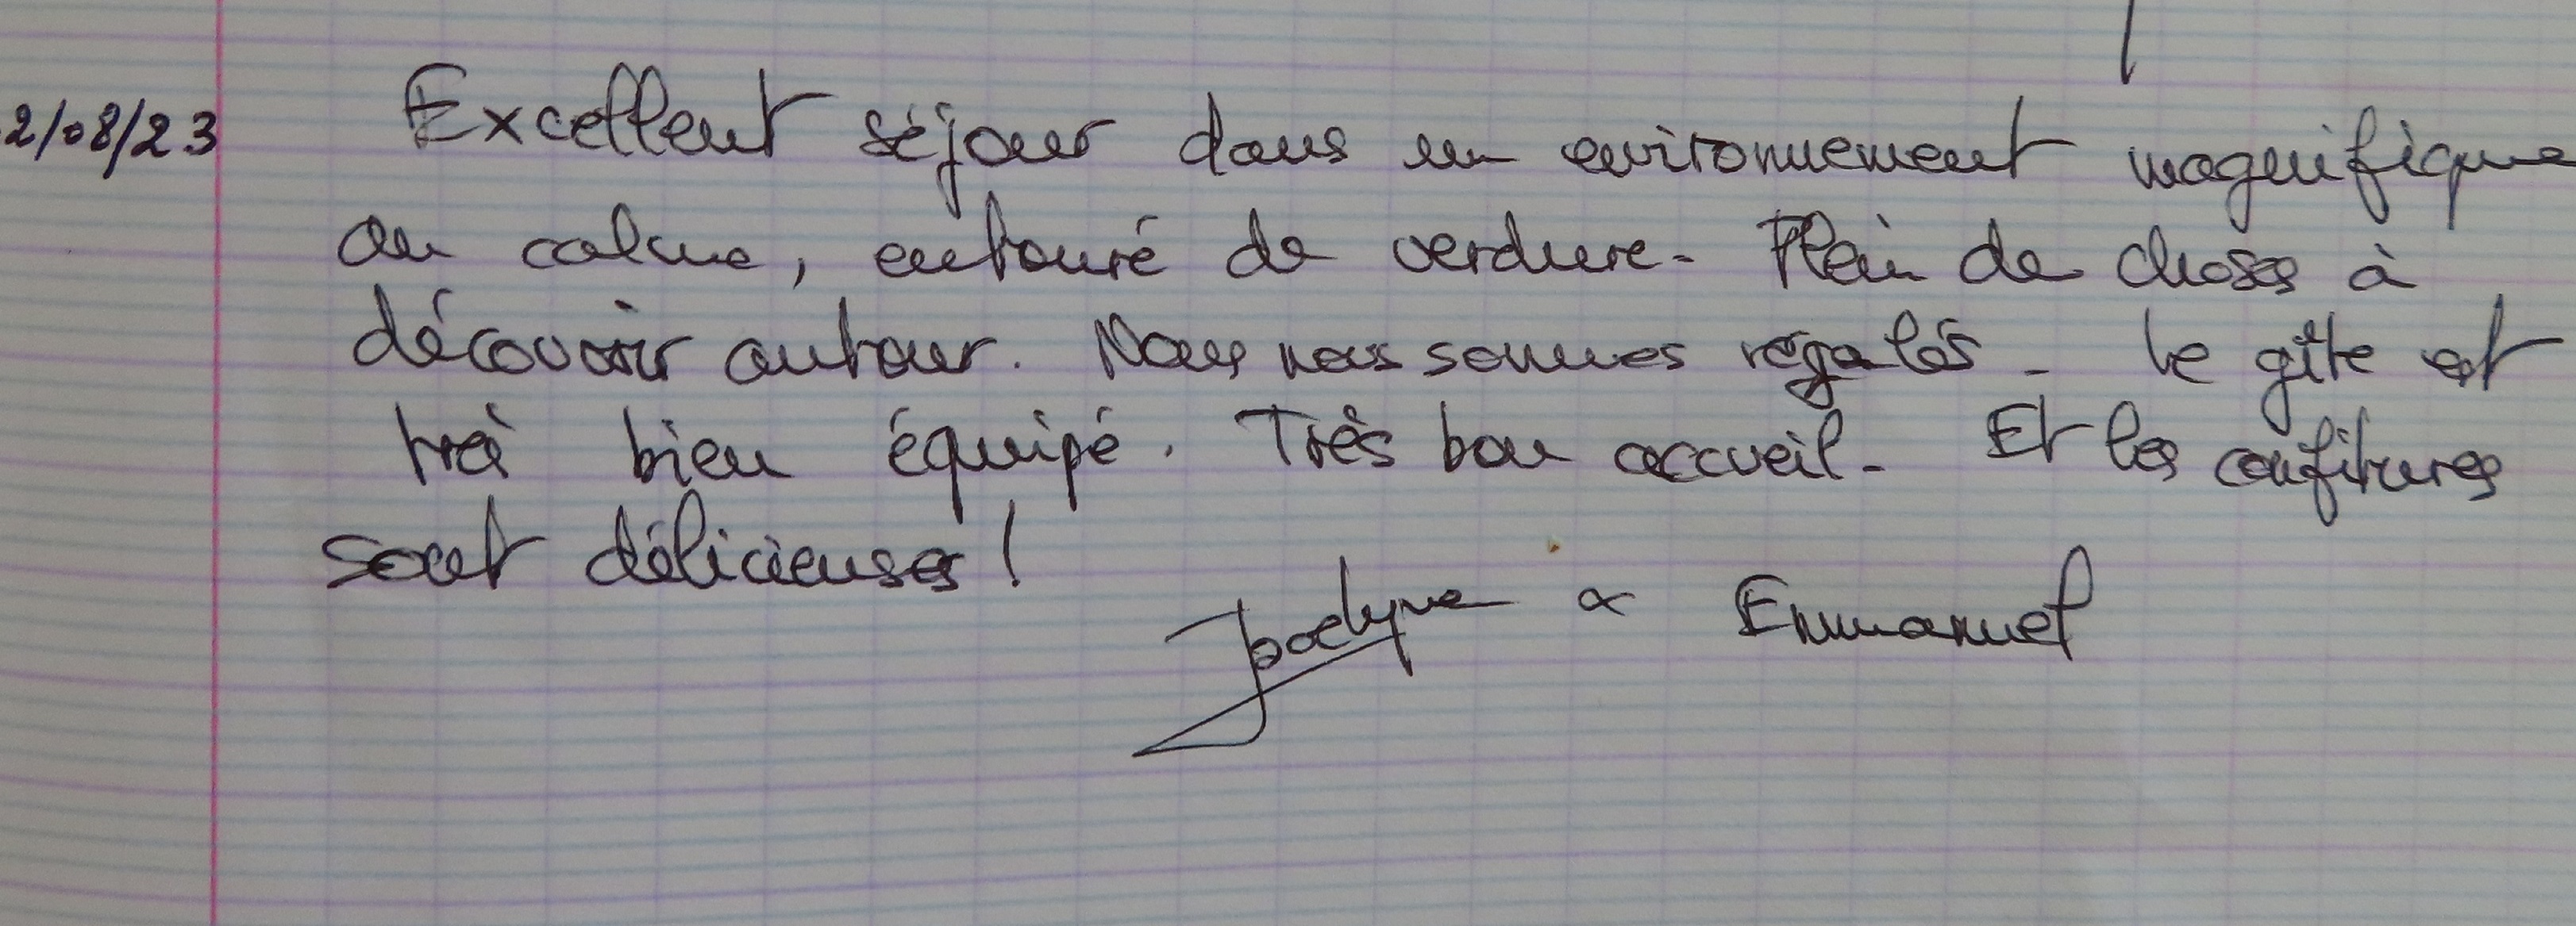 2/08/23 Excellent séjour dans un environnement magnifique
au calme, entouré de verdure. Plein de choses à
découvrir autour. Nous nous sommes régalés. Le gîte est
très bien équipé. Très bon accueil. Et les confitures
sont délicieuses !
Jocelyne & Emmanuel